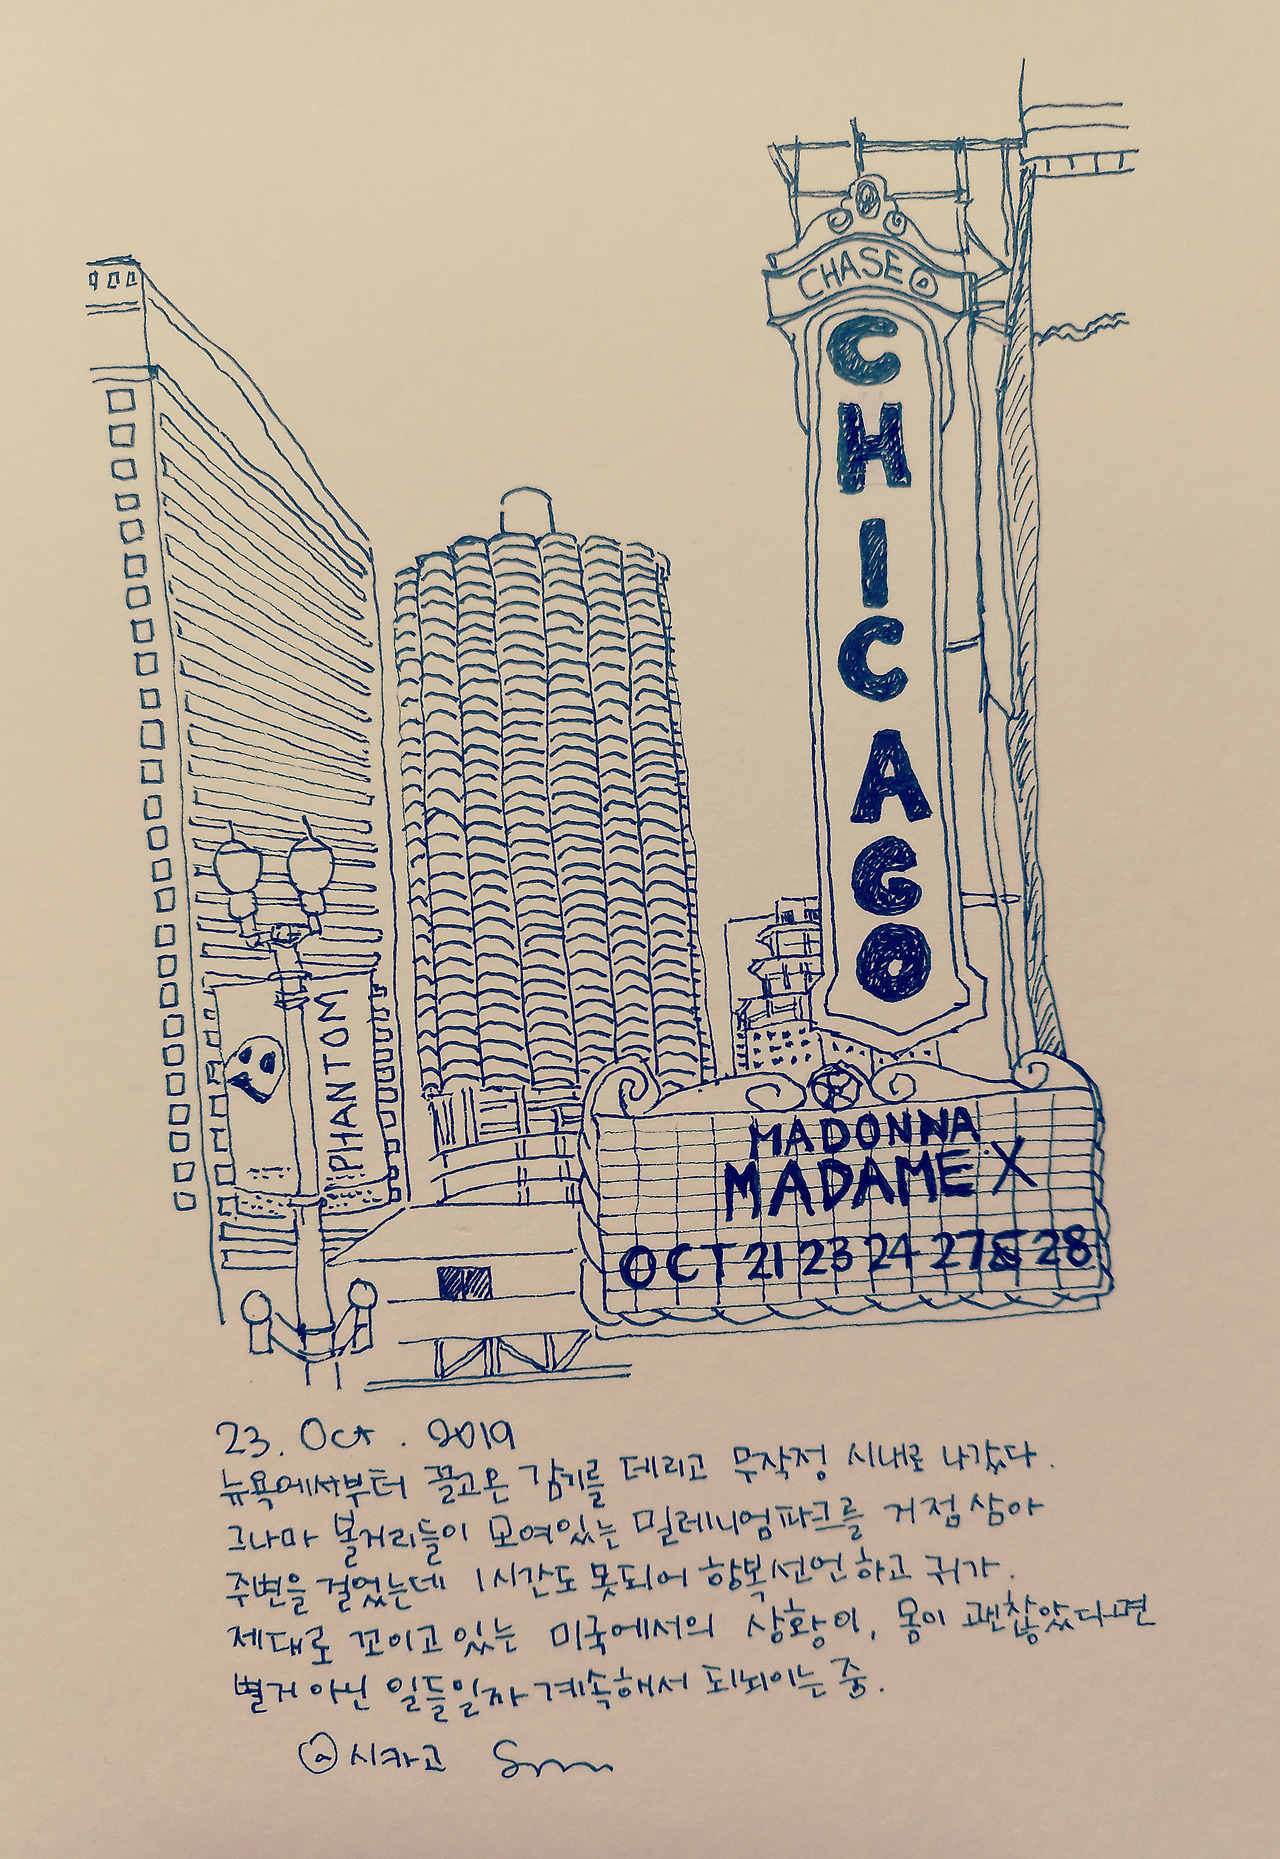 CHASE
CHICAGO
PHANTOM
MADONNA
MADAME X
OCT 21 23 24 27 & 28
23. Oct. 2019
뉴욕에서부터 끌고온 감기를 데리고 무작정 시내로 나갔다.
그나마 볼거리들이 모여있는 밀레니엄파크를 거점삼아
주변을 걸었는데 1시간도 못되어 항복선언하고 귀가.
제대로 꼬이고있는 미국에서의 상황이, 몸이 괜찮았다면
별거 아닌 일들일까 계속해서 되뇌이는 중.
@시카고